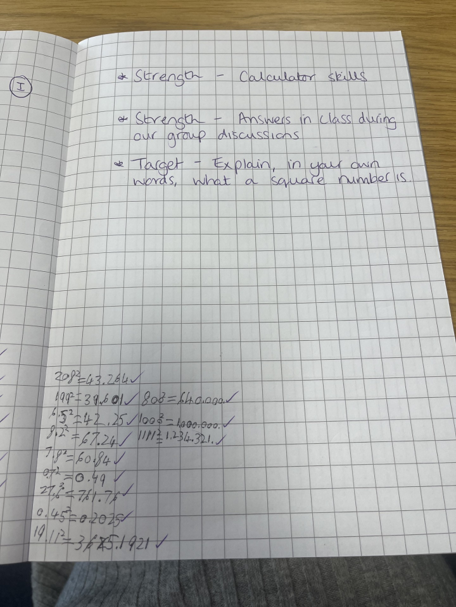 I
* Strength - Calculator skills
* Strength - Answers in class during
our group discussions
* Target - Explain, in your own
words, what a square number is
208²=43.264✓
199²=39.601✓ 800²=640.000✓
6.5²=42.25✓ 1000²=1000.000✓
8.2²=67.24✓ 1111²=1.234.321✓
7.8²=60.84✓
0.7²=0.49✓
27.6²=761.76✓
0.45²=0.2025✓
=3,6✓